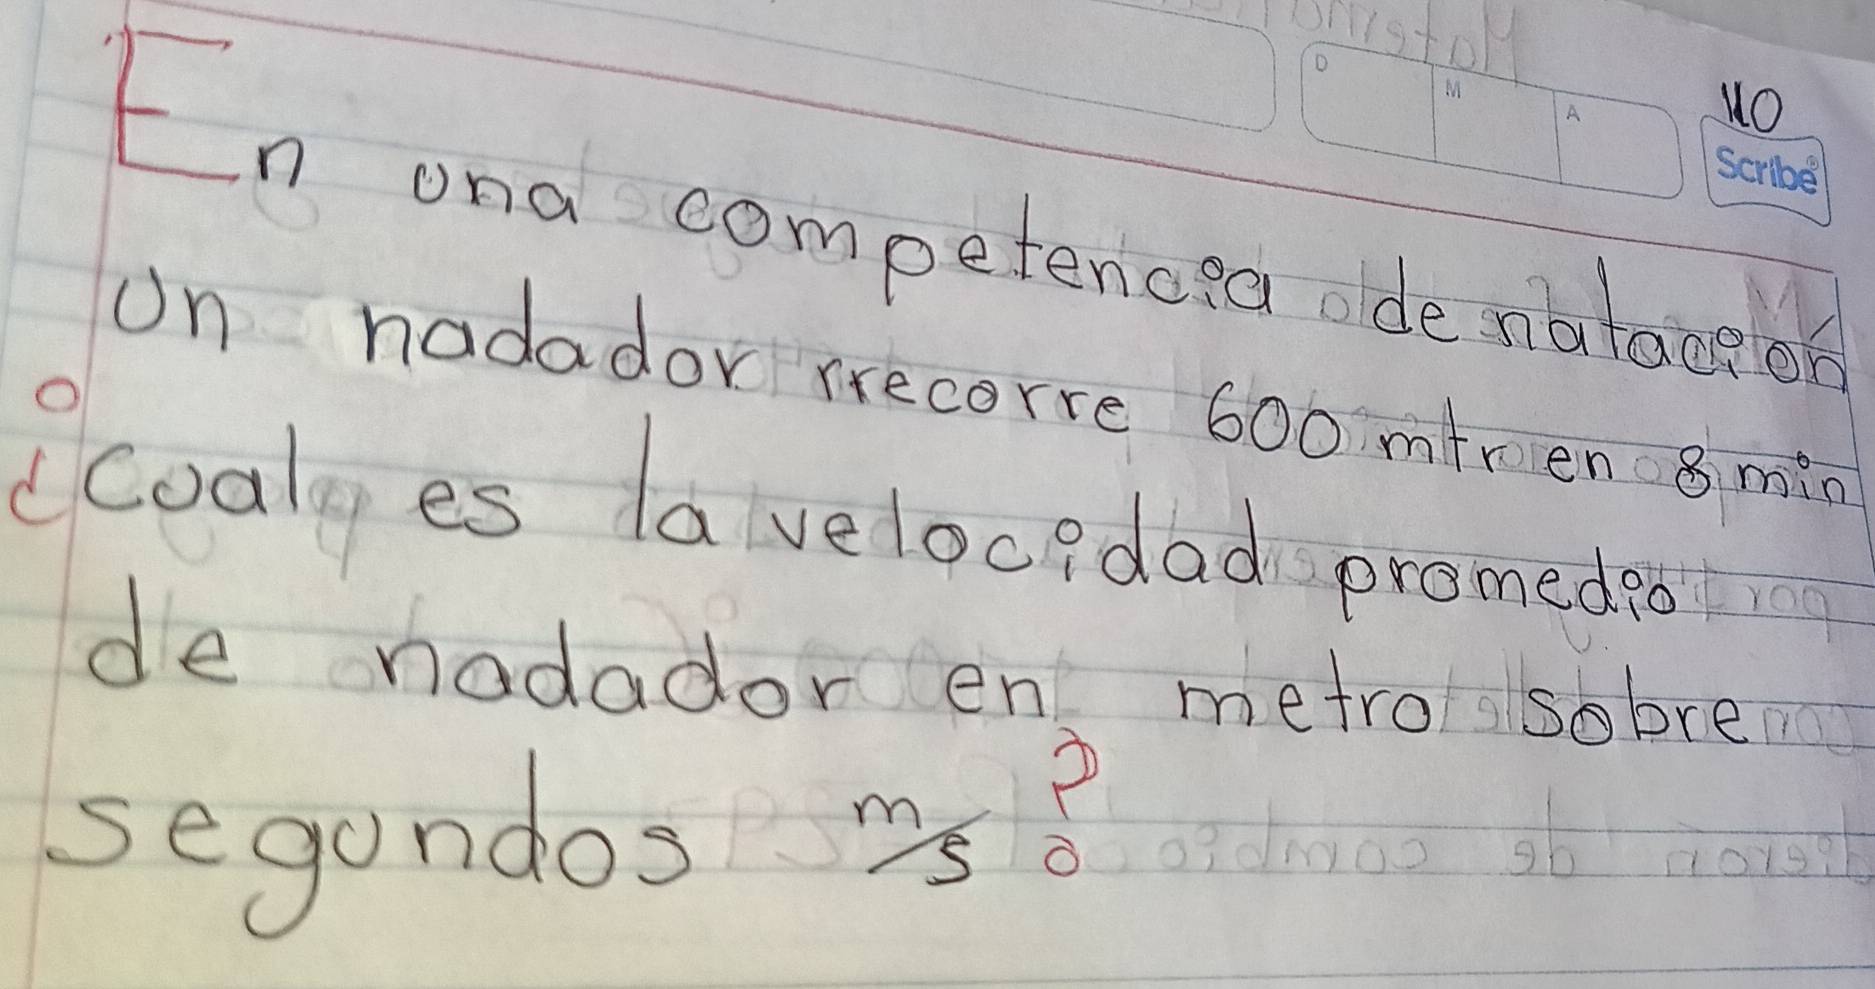 D M A
NO
Scribe
En una competencia de natación
un nadador rrecorre 600 mtr en 8 min
¿cual es la velocidad promedio
de nadador en metro sobre
segundos m/s?